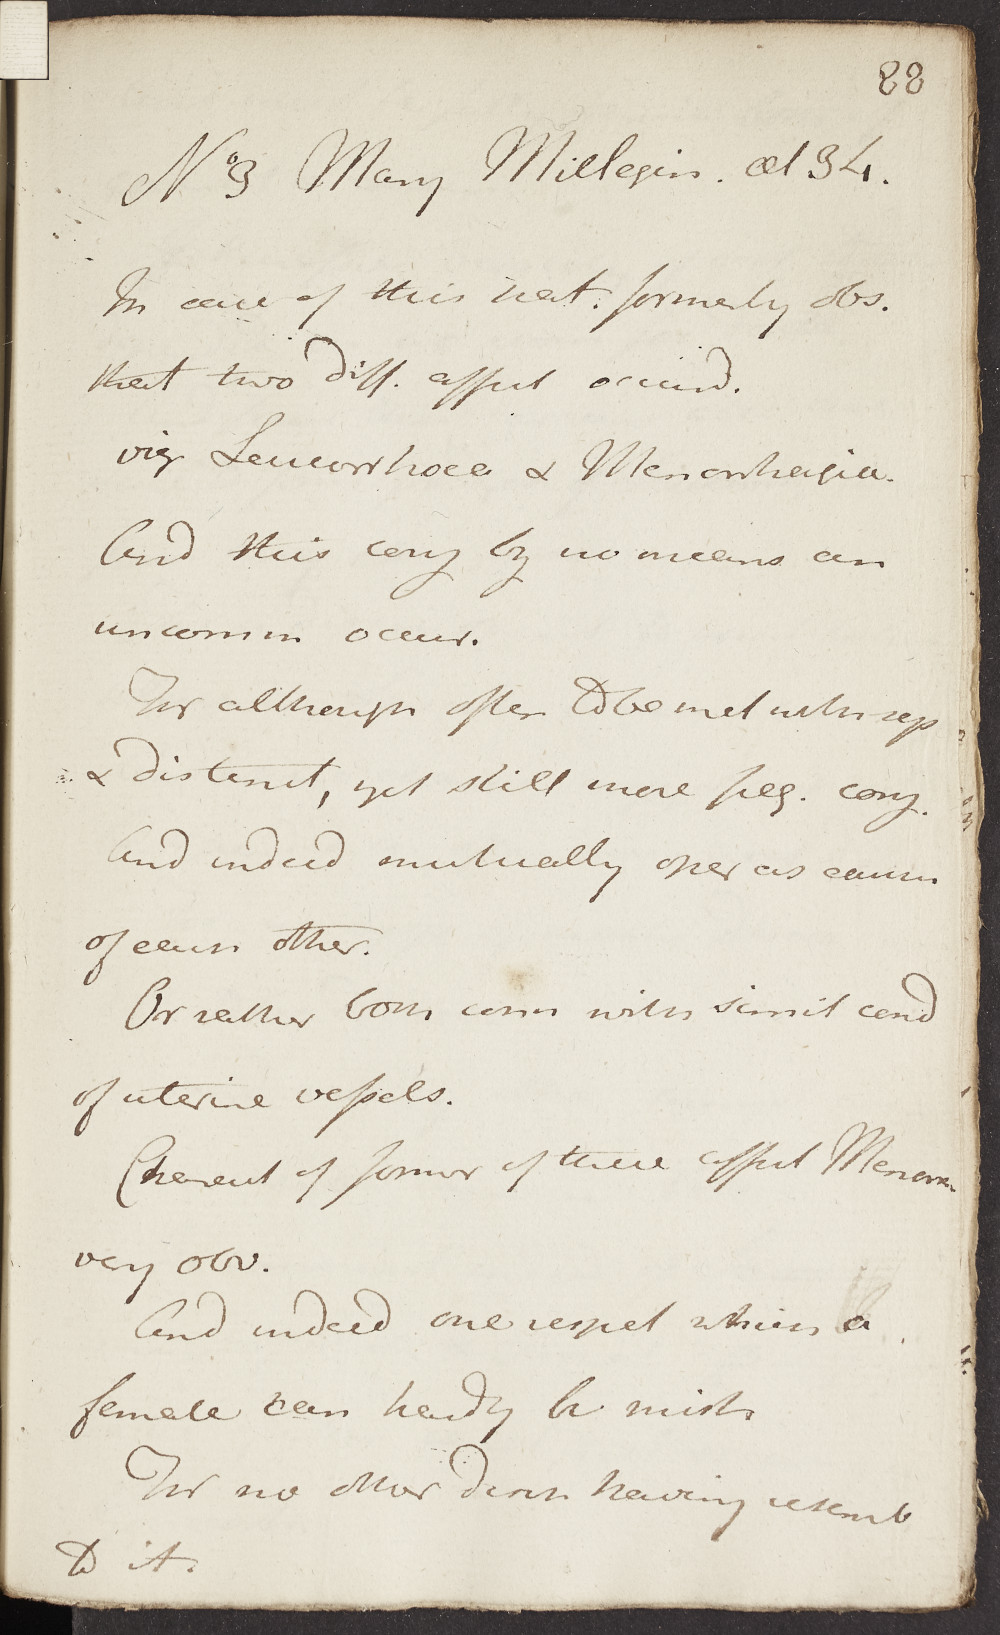 88
No 3 Mary Millegin. æt 34.
In case of this nat. formerly obs.
that two diff. affect occurd.
viz Leucorrhoea & Menorrhagia.
And this conj by no means an
uncomm occur.
For although often to be met with sep
& distinct, yet still more freq. conj.
And indeed mutually oper as causes
of each other.
Or rather both conn with simil cond
of uterine vessels.
Charact of former of these affect Menorr
very obv.
And indeed one respect which a
female can hardly be mist
For no other disch having resemb
to it.